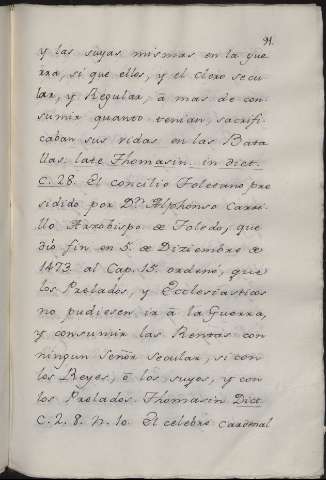 91.
y las suyas mismas en la gue
rra, si que ellos, y el clero secu
lar, y Regular, à mas de con
sumir quanto tenian, sacrifi
caban sus vidas en las Bata
llas, late Thomasin. in dict.
C. 28. El concilio Toletano, pre
sidido por Dn. Alphonso Carri
llo Arzobispo de Toledo, que
dió fin en 5. de Diziembre de
1473. al Cap. 15. ordenó, que
los Prelados, y Ecclesiasticos
no pudiesen ir à la Guerra,
y consumir las Rentas con
ningun Señor secular, si con
los Reyes, ò los suyos, y con
los Prelados. Thomasin Dict.
C. 2. 8. n. 10. El celebre Cardenal